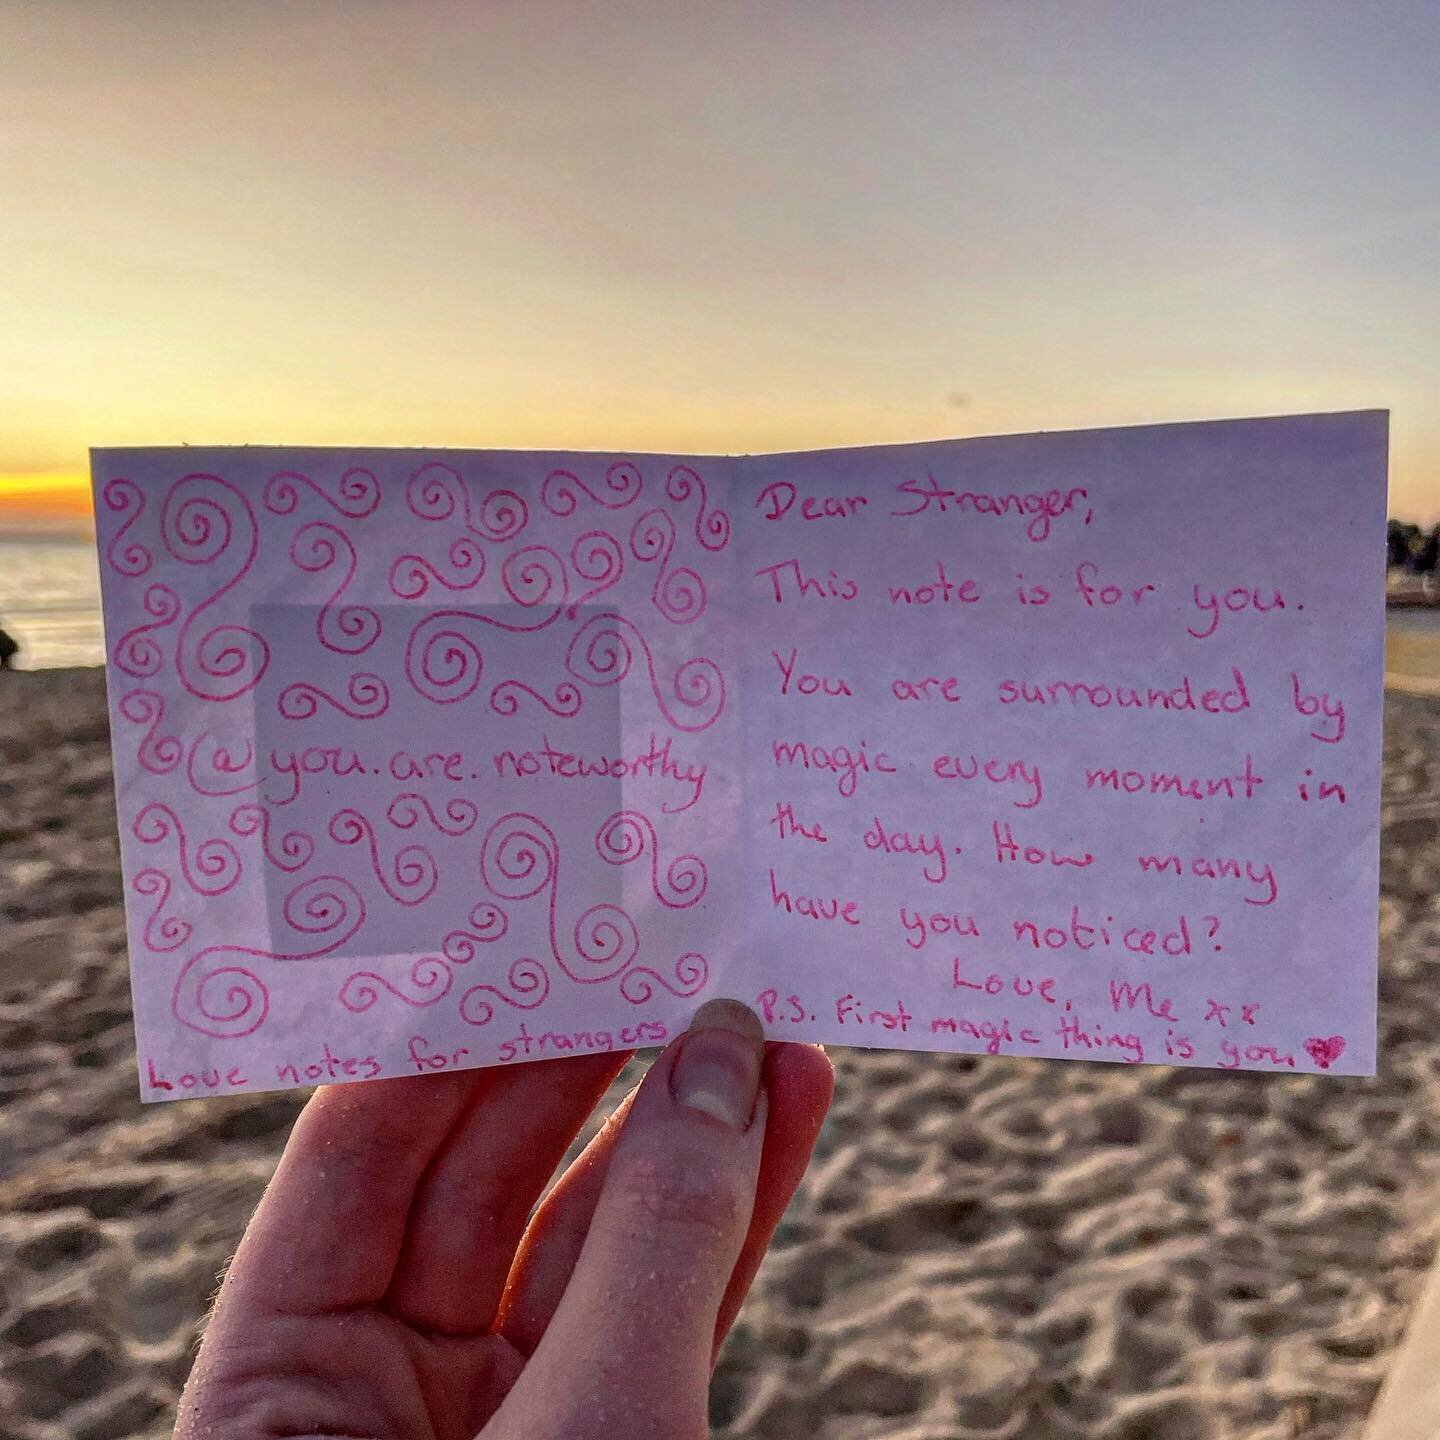 @you.are.noteworthy
Love notes for strangers
Dear Stranger,
This note is for you.
You are surrounded by
magic every moment in
the day. How many
have you noticed?
Love, Me xx
P.S. First magic thing is you